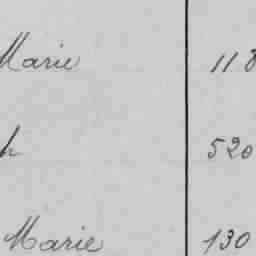 Marie 118
h 520
Marie 130